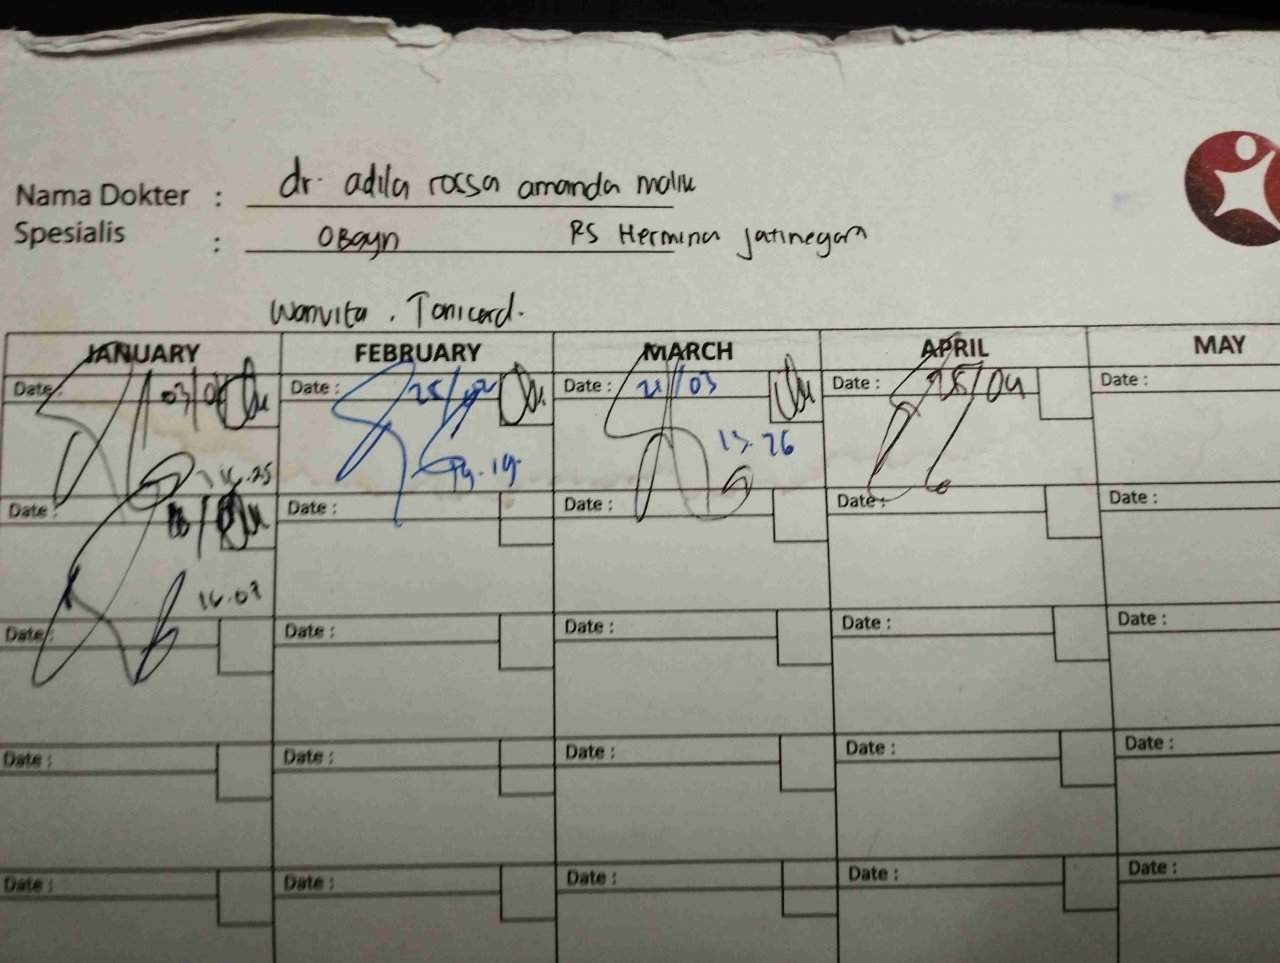 Nama Dokter : dr. adila rossa amanda malik
Spesialis : OBGYN RS Hermina Jatinegara
Wanvita . Tonicard.
JANUARY FEBRUARY MARCH APRIL MAY
Date: 03/ Date : 25/02 Date : 21/03 Date : 25/04 Date :
14.25 19.19 13.26
Date : Date : Date : Date : Date :
16.07
Date : Date : Date : Date : Date :
Date : Date : Date : Date : Date :
Date : Date : Date : Date : Date :